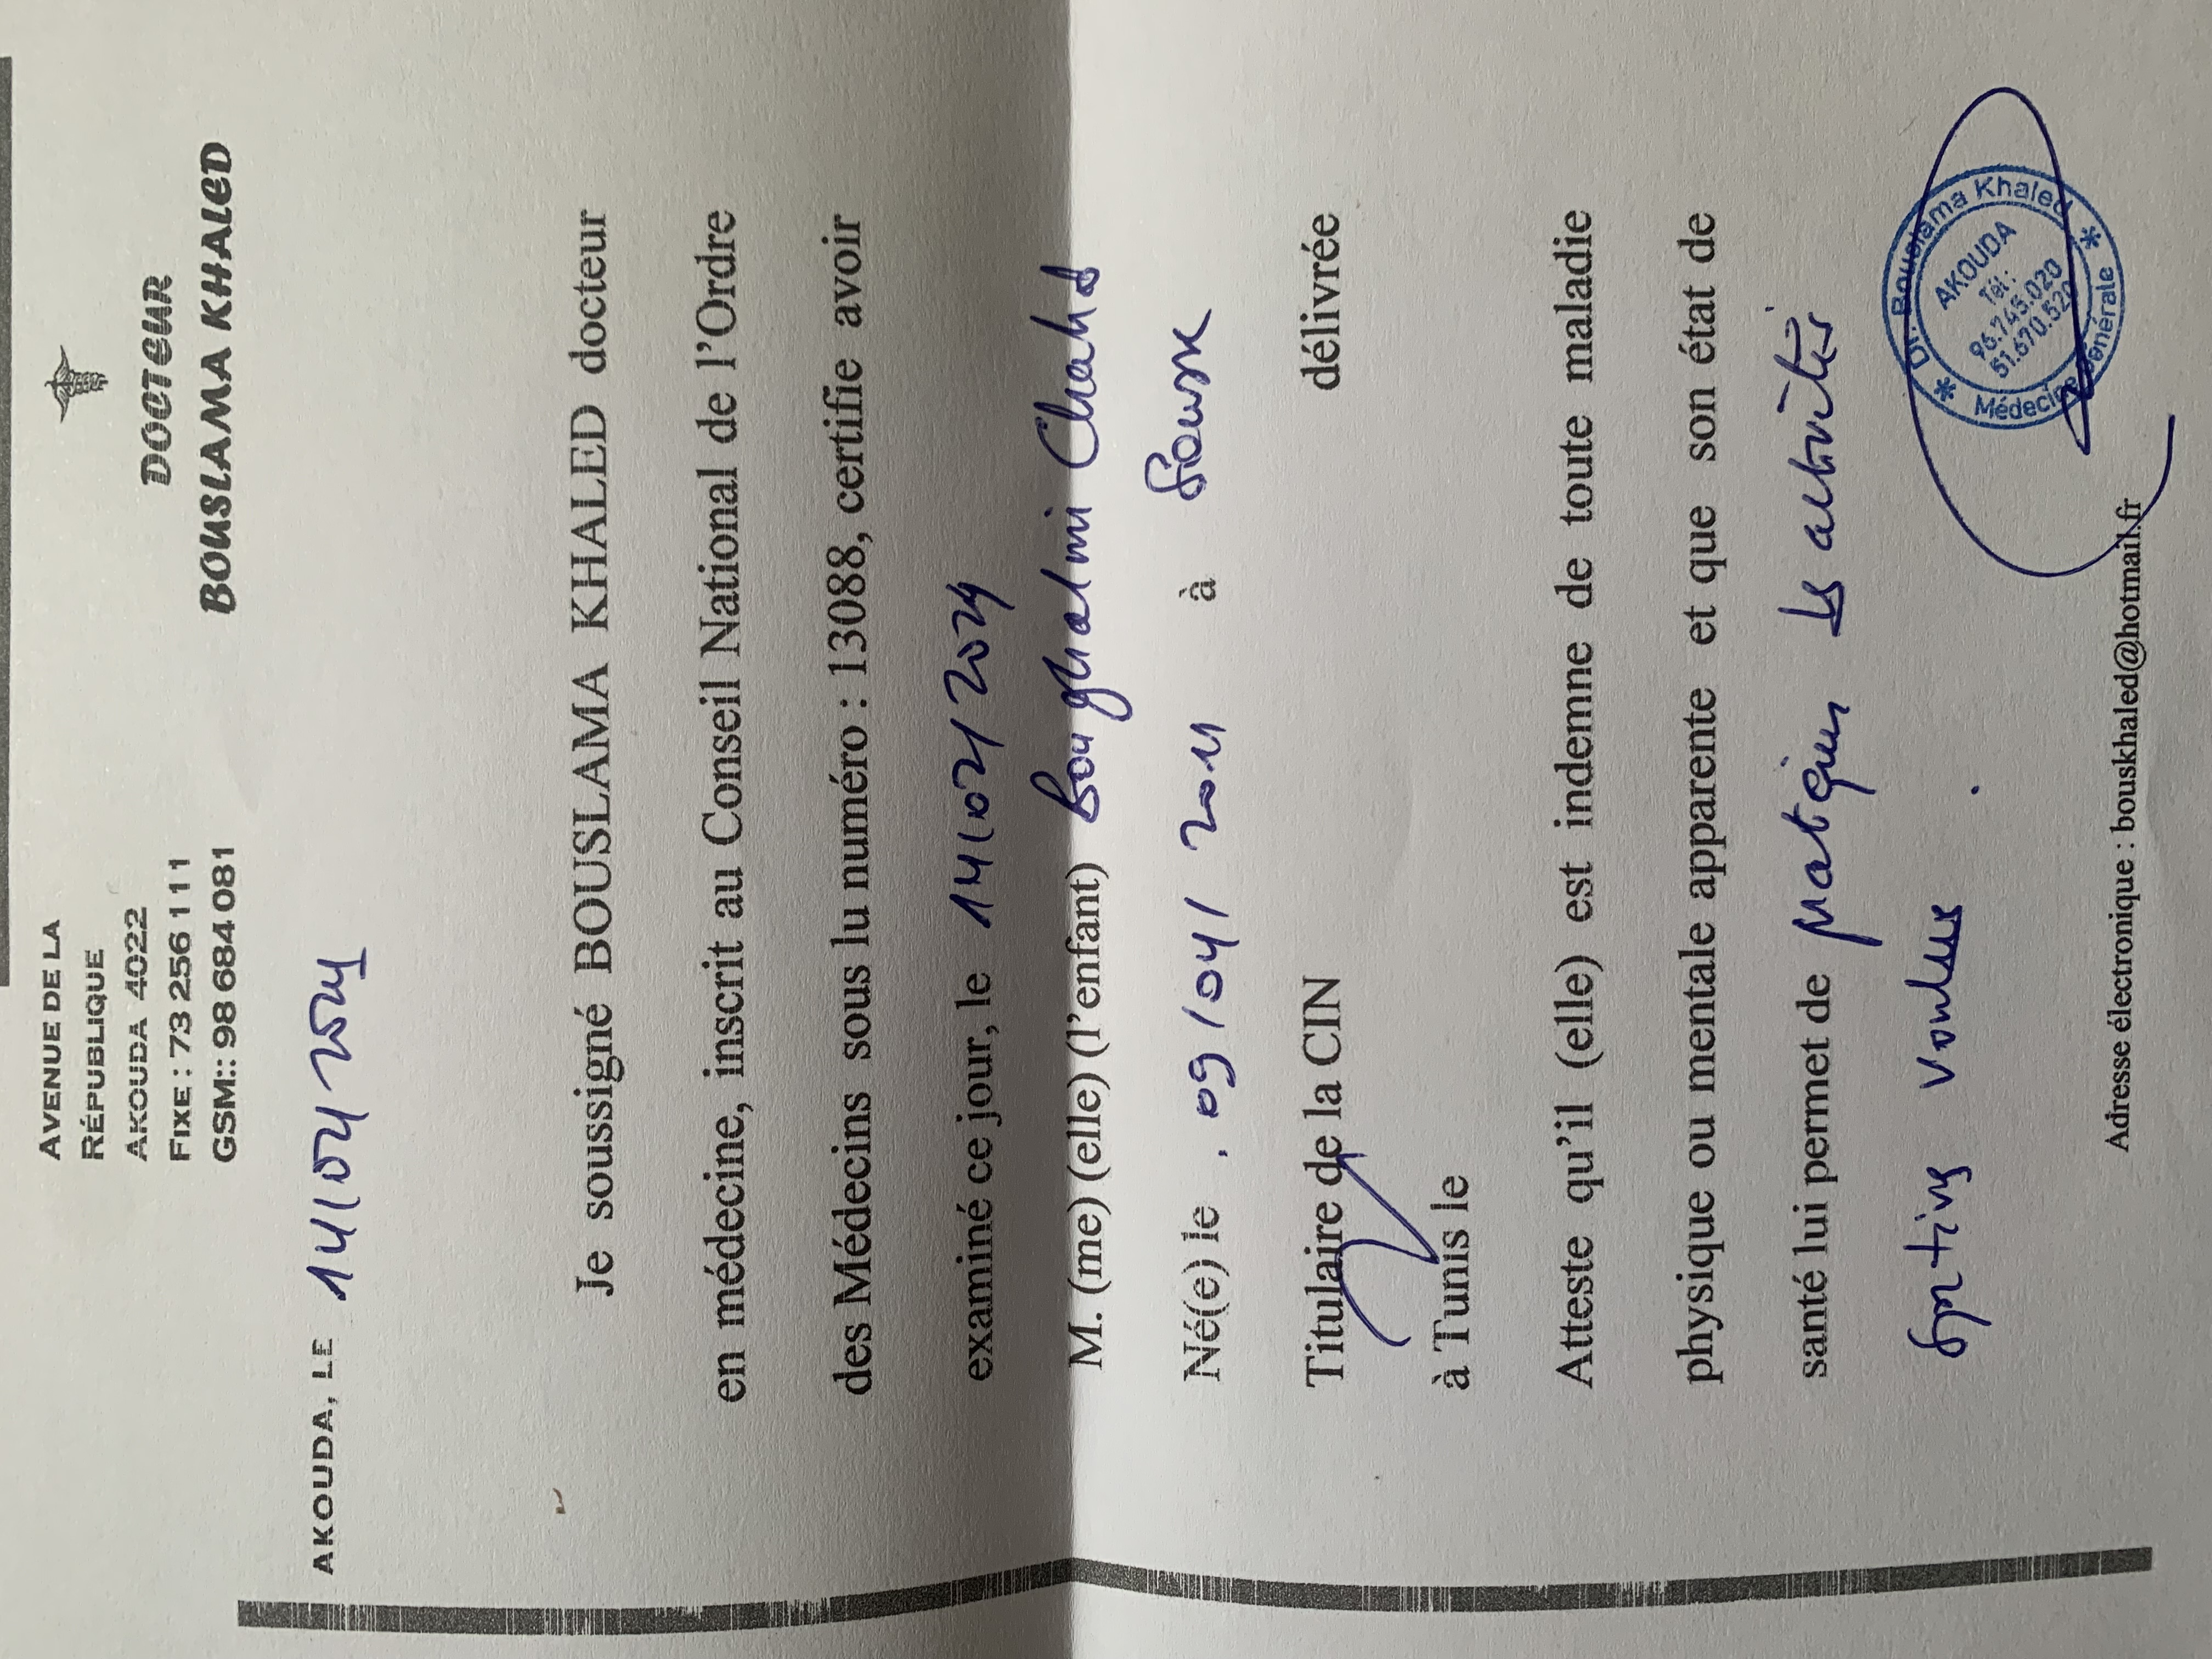 AVENUE DE LA
RÉPUBLIQUE
AKOUDA 4022
FIXE : 73 256 111
GSM:: 98 684 081
DOCTEUR
BOUSLAMA KHALED
AKOUDA, LE 14/02/2024
Je soussigné BOUSLAMA KHALED docteur
en médecine, inscrit au Conseil National de l'Ordre
des Médecins sous lu numéro : 13088, certifie avoir
examiné ce jour, le 14/02/2024
M. (me) (elle) (l'enfant) Boughalmi Chahd
Né(e) le . 09/04/2011 à Sousse
Titulaire de la CIN délivrée
à Tunis le
Atteste qu'il (elle) est indemne de toute maladie
physique ou mentale apparente et que son état de
santé lui permet de pratiquer les activités
sportives voulues .
Dr. Bouslama Khaled
AKOUDA
Tél :
96.745.020
51.670.520
Médecine Générale
Adresse électronique : bouskhaled@hotmail.fr